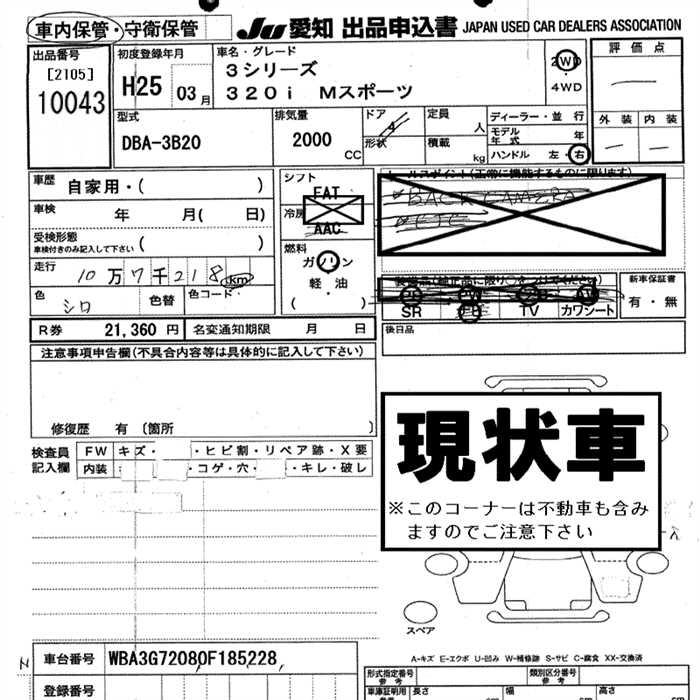 車内保管・守衛保管
JU 愛知 出品申込書 JAPAN USED CAR DEALERS ASSOCIATION
出品番号
[2105]
10043
初度登録年月
H25 03 月
車名・グレード
3シリーズ
320i Mスポーツ
2WD
・
4WD
評価点
外装 内装
型式
DBA-3B20
排気量
2000
CC
ドア
4
形状
定員
人
積載
kg
ディーラー・並行
モデル年式 年
ハンドル 左・右
車歴 自家用・( )
車検 年 月( 日)
受検形態
車検付きのみ記入して下さい ( )
走行
10万7千218km
色 シロ 色替 色コード・
R券 21,360 円 名変通知期限 月 日
シフト
FAT
冷房
AAC
燃料
ガソリン
軽・油
( )
セールスポイント(正常に機能するものに限ります)
BACK CAMERA
ETC
SR TV カワシート
新車保証書
有・無
後日品
注意事項申告欄(不具合内容等は具体的に記入して下さい)
修復歴 有〔箇所 〕
検査員
記入欄
FW キズ・ ・ヒビ割・リペア跡・X要
内装 ・コゲ・穴・ ・キレ・破レ
現状車
※このコーナーは不動車も含み
ますのでご注意下さい
スペア
A-キズ E-エクボ U-凹み W-補修跡 S-サビ C-腐食 XX-交換済
車台番号 WBA3G72080F185228
登録番号
型式指定番号
参考
類別区分番号
参考
車庫証明用
参考
長さ
cm
幅
cm
高さ
cm